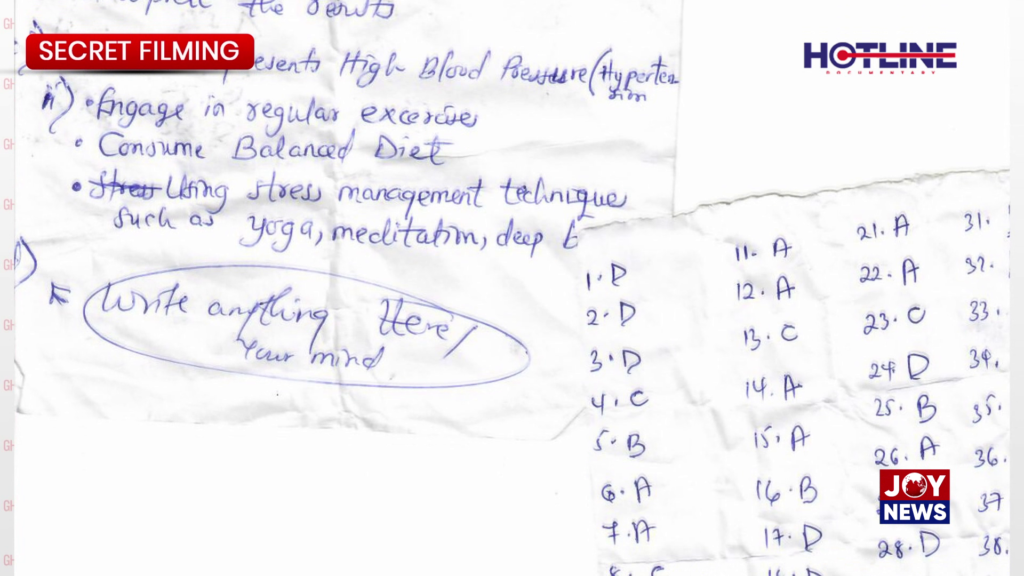 the
SECRET FILMING
HOTLINE
DOCUMENTARY
High Blood Pressure (Hyperten
sion
ii) • Engage in regular excercise
• Consume Balanced Diet
• Stress Using stress management technique
such as yoga, meditation, deep b
Write anything Here/
Your mind
1. D
2. D
3. D
4. C
5. B
6. A
7. A
11. A
12. A
13. C
14. A
15. A
16. B
17. D
21. A
22. A
23. C
24. D
25. B
26. A
28. D
31.
32.
33.
34.
35.
36.
37
38.
JOY
NEWS